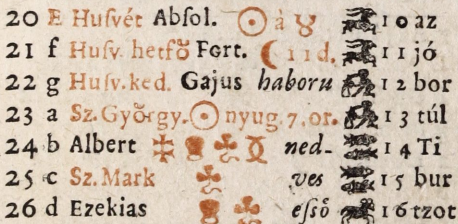 20 E Huſvét Abſol. ☉ à ♉ 10 az
21 f Huſv. hetfő Fort. ☾ 11 d. 11 jó
22 g Huſv. ked. Gajus haboru 12 bor
23 a Sz. György. ☉ nyug. 7. or. 13 túl
24 b Albert ned- 14 Ti
25 c Sz. Mark ves 15 bur
26 d Ezekias eſső 16 tzot